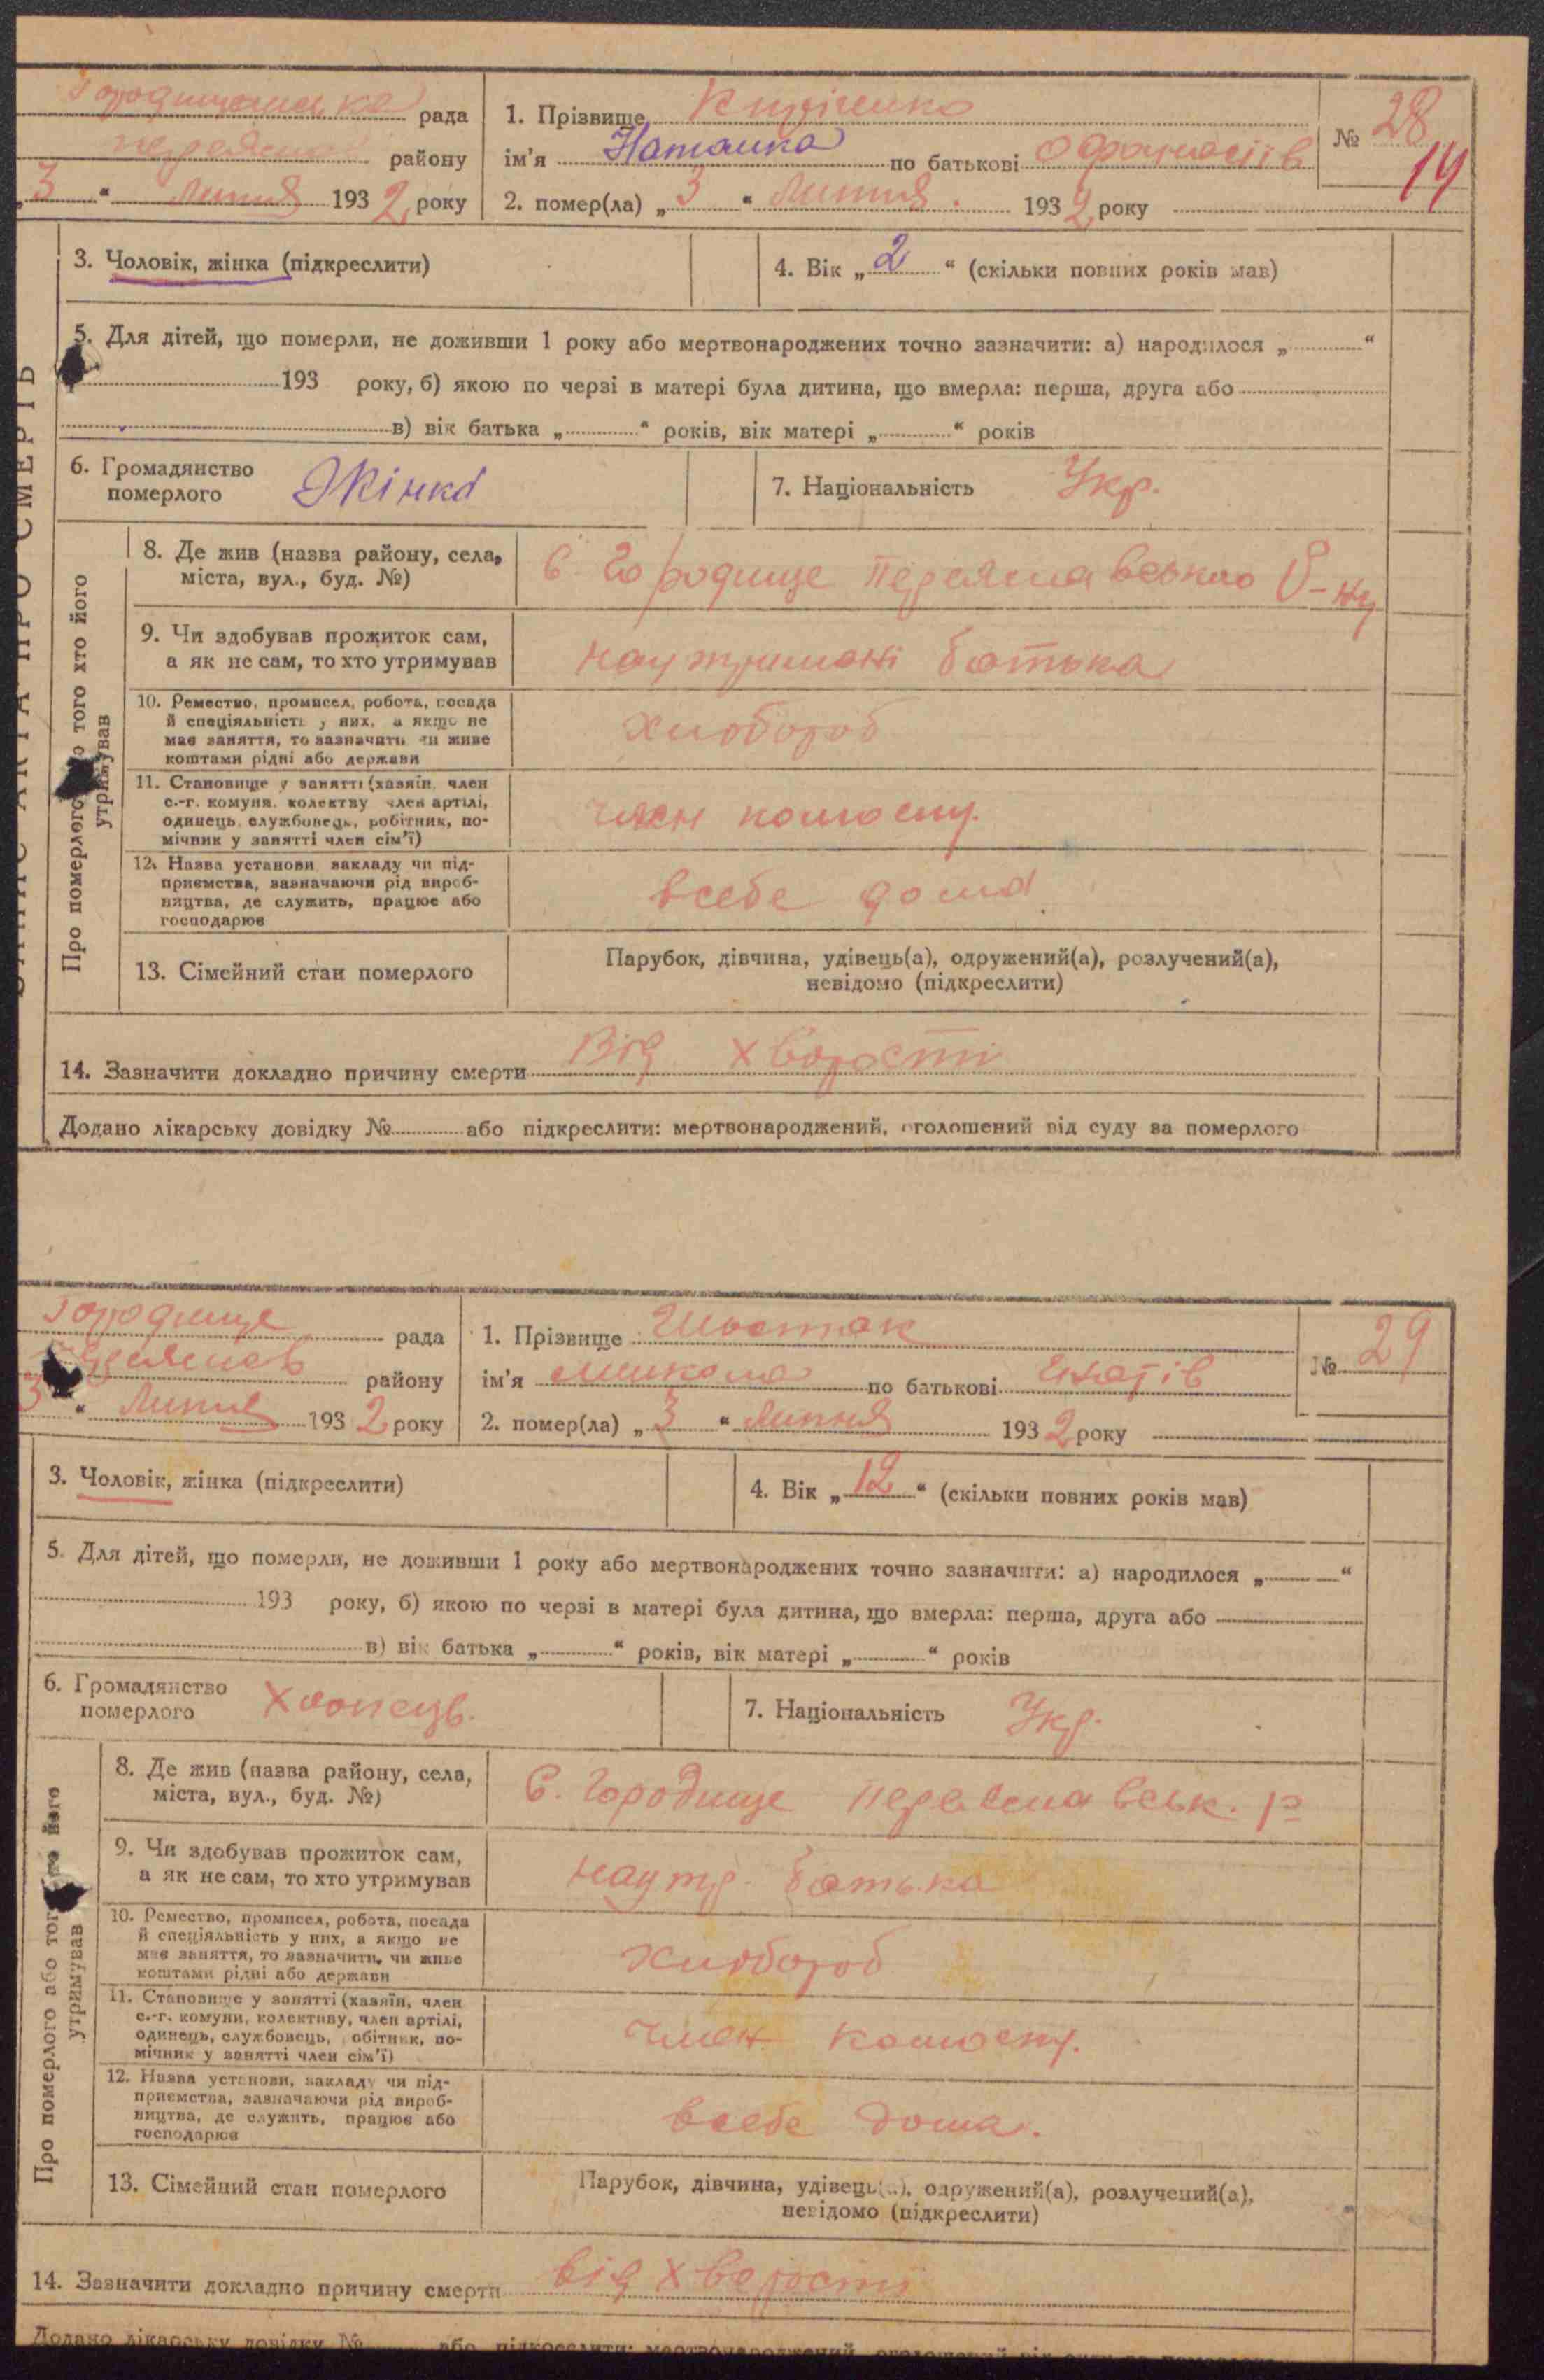 Городищанська рада
району
3 " Липня 1932 року
1. Прізвище Кириченко
ім'я Наталка по батькові
2. помер(ла) „ 3 " Липня. 1932 року
№ 28
14
3. Чоловік, жінка (підкреслити)
4. Вік „ 2 " (скільки повних років мав)
5. Для дітей, що померли, не доживши 1 року або мертвонароджених точно зазначити: а) народилося „ "
193 року, б) якою по черзі в матері була дитина, що вмерла: перша, друга або
в) вік батька „ " років, вік матері „ " років
6. Громадянство
померлого Жінка
7. Національність Укр.
Про померлого того хто його
утримував
8. Де жив (назва району, села,
міста, вул., буд. №)
С. Городище Переяславського Р-ну
9. Чи здобував прожиток сам,
а як не сам, то хто утримував
наутримані батька
10. Ремество, промисел, робота, посада
й спеціяльність у них, а якщо не
має заняття, то зазначить чи живе
коштами рідні або держави
хлібороб
11. Становище у занятті (хазяїн, член
с.-г. комуни, колективу член артілі,
одинець, службовець, робітник, по-
мічник у занятті член сім'ї)
член колгоспу.
12. Назва установи закладу чи під-
приємства, зазначаючи рід вироб-
ництва, де служить, працює або
господарює
всебе дома
13. Сімейний стан померлого
Парубок, дівчина, удівець(а), одружений(а), розлучений(а),
невідомо (підкреслити)
14. Зазначити докладно причину смерти Від хворости
Додано лікарську довідку № або підкреслити: мертвонароджений, оголошений від суду за померлого
Городище рада
району
3 " Липня 1932 року
1. Прізвище Шостак
ім'я Микола по батькові Ігнатів
2. помер(ла) „ 3 " Липня 1932 року
№ 29
3. Чоловік, жінка (підкреслити)
4. Вік „ 12 " (скільки повних років мав)
5. Для дітей, що померли, не доживши 1 року або мертвонароджених точно зазначити: а) народилося „ "
193 року, б) якою по черзі в матері була дитина, що вмерла: перша, друга або
в) вік батька „ " років, вік матері „ " років
6. Громадянство
померлого Хлопець.
7. Національність Укр.
Про померлого або того його
утримував
8. Де жив (назва району, села,
міста, вул., буд. №)
С. Городище Переяславськ. р
9. Чи здобував прожиток сам,
а як не сам, то хто утримував
наутр. батька
10. Ремество, промисел, робота, посада
й спеціяльність у них, а якщо не
має заняття, то зазначити, чи живе
коштами рідні або держави
хлібороб
11. Становище у занятті (хазяїн, член
с.-г. комуни, колективу, член артілі,
одинець, службовець, робітник, по-
мічник у занятті член сім'ї)
член колгоспу.
12. Назва установи, закладу чи під-
приємства, зазначаючи рід вироб-
ництва, де служить, працює або
господарює
всебе дома.
13. Сімейний стан померлого
Парубок, дівчина, удівець(а), одружений(а), розлучений(а),
невідомо (підкреслити)
14. Зазначити докладно причину смерти від хворости
Додано лікарську довідку № або підкреслити: мертвонароджений, оголошений від суду за померлого